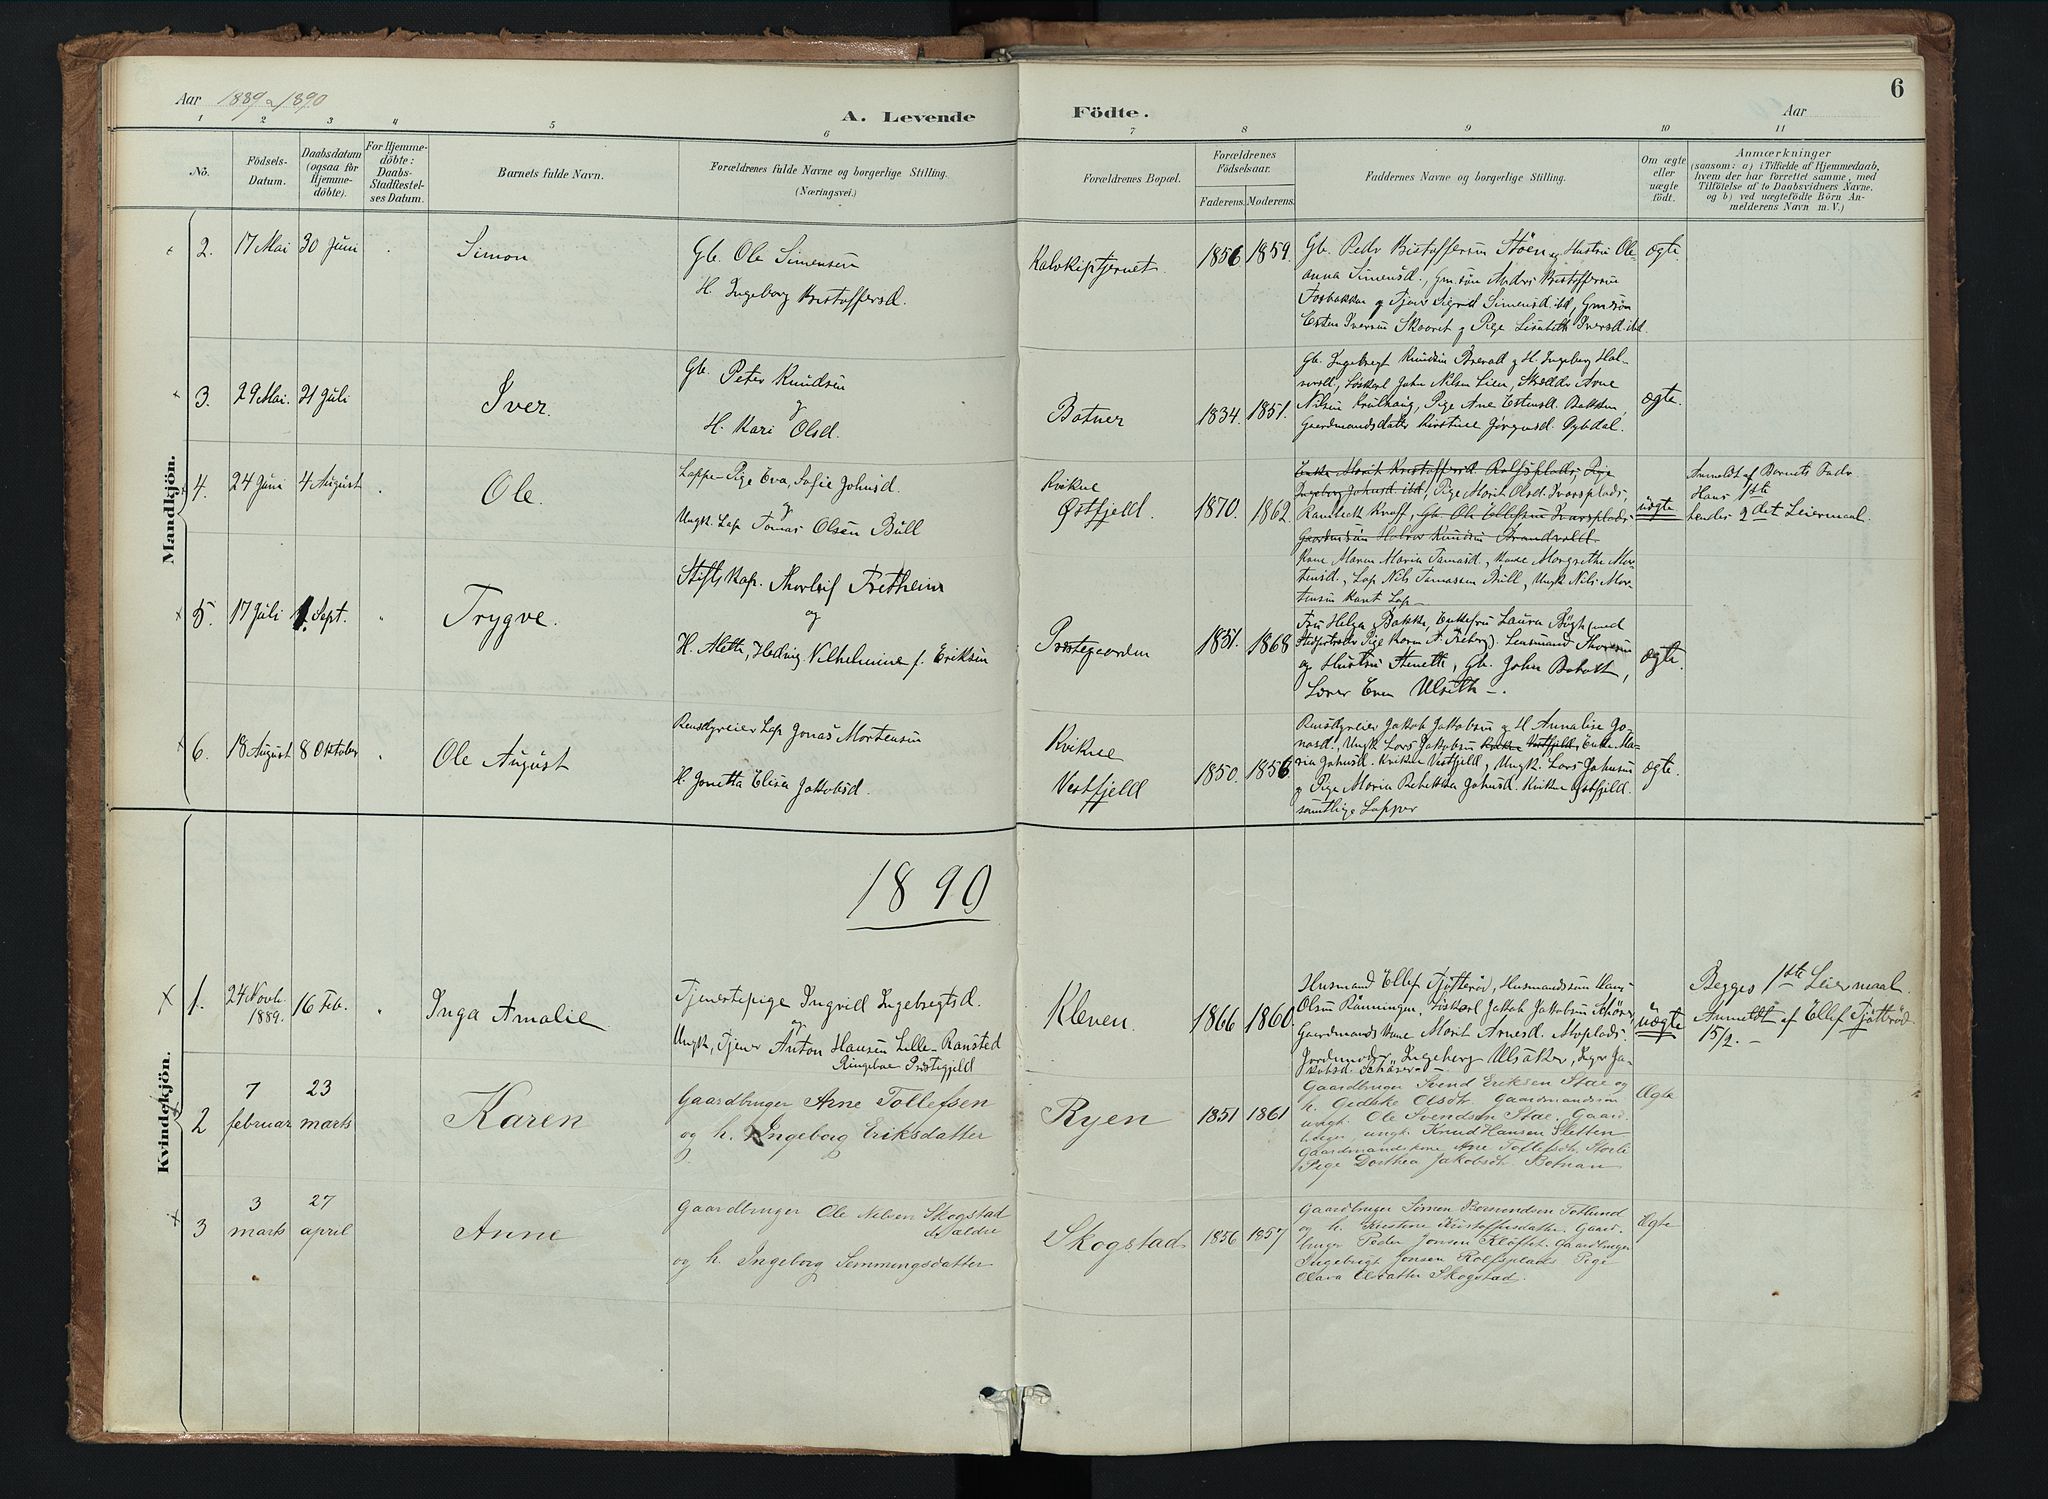 Aar 1889 & 1890
A. Levende Födte.
Aar
6
1 2 3 4 5 6 7 8 9 10 11
No.
Födsels-
Datum.
Daabsdatum
(ogsaa for
Hjemme-
döbte).
For Hjemme-
döbte:
Daabs-
Stadfæstel-
ses Datum.
Barnets fulde Navn.
Forældrenes fulde Navne og borgerlige Stilling.
(Næringsvei.)
Forældrenes Bopæl.
Forældrenes
Födselsaar.
Faderens. Moderens.
Faddernes Navne og borgerlige Stilling.
Om ægte
eller
uægte
födt.
Anmærkninger
(saasom: a) i Tilfælde af Hjemmedaab,
hvem der har forrettet samme, med
Tilföielse af to Daabsvidners Navne,
og b) ved uægtefödte Börn An-
melderens Navn m. V.)
Mandkjön.
2. 17 Mai 30 Juni
Simon
Gb. Ole Simensen
H. Ingeborg Kristoffersd.
Kalvkiptjernet.
1856 1859.
Gb. Peder Kristoffersen Stöen og Hustru Ole-
anna Simensd., Gmsön Anders Kristoffersen
Fosbakken og Tjener Sigrid Simensd. ibd, Gmsön
Esten Iversen Skaaret og Pige Lisabeth Iversd. ibd
ægte.
3. 29 Mai. 21 Juli
Iver.
Gb. Peter Knudsen
og
H. Kari Olsd.
Botner
1834. 1851.
Gb. Ingebregt Knudsen Brevad og H. Ingeborg Hal-
vorsd, Löskarl John Nilsen Lien, Skrædder Arne
Nilsen Krulhaug, Pige Ane Estensd. Bakken,
Gaardmandsdatter Kirstine Jörgensd. Dybdal.
ægte.
4. 24 Juni 4 August
Ole.
Lappe-Pige Eva Sofie Johnsd.
og
Ungk. Lap Tomas Olsen Bull
Kvikne
Østfjeld.
1870. 1862.
Enke Marit Kristoffersd. Rolfsplads, Pige
Ingeborg Johnsd. ibd, Pige Marit Olsd. Ivarsplads,
Kandidat Knoff, Gb. Ole Ellefsen Ivarsplads
Gaardmsön Halvor Knudsen Brandvold.
Kone Maren Maria Tomasd., Kone Margrethe Mor-
tensd., Lap Nils Tomassen Bull, Ungk Nils Mor-
tensen Kant Lap
uægte
Anmeldt af Barnets Fader
Hans 1ste
hendes 2det Leiermaal.
5. 17 Juli 1. Sept.
Trygve.
Stifts Kap. Thorleif Fretheim
og
H. Mette, Hedvig Vilhelmine f. Eriksen
Prestegaarden
1851. 1868
Fru Helga Bakke, Enkefru Laura Bügh (med
Lensmand
og Hustru Anette, Gb. John Bakaat,
Lærer Even Ulseth.
ægte.
6. 18 August 8 Oktober
Ole August
Rensdyreier Lap Jonas Mortensen
H. Jonetta Elisa Jakobsd.
Kvikne
Vestfjeld
1850. 1856
Rensdyreier Jakob Jakobsen og H. Annalise Jo-
nasd., Ungk Lars Jakobsen Kvikne Vestfjeld, Enke Ma-
ria Johnsd. Kvikne Vestfjeld, Ungk. Lars Johnsen
og Pige Maria Rebekka Johnsd. Kvikne Østfjeld.
samtlige Lapper
ægte.
1890
Kvindekjön.
1. 24 Novb. 1889. 16 Feb.
Inga Amalie
Tjenestepige Ingrid Ingebregtsd.
og
Ungk, Tjener Anton Hansen Lille-Ransted
Ringebo Prestegjeld
Kleven.
1866 1860
Husmand Ellef Tjötteröd, Husmandssön Hans
Olsen Rønningen, Fiskarl Jakob Jakobsen Schärer,
Gaardmands Kone Marit Arnesd. Moplads.
Jordmoder Ingeborg Ulsaker, Inger Ja-
kobsd. Schärer.
uægte
Begges 1ste Leiermaal.
Anmeldt af Ellef Tjötteröd
15/2.
2 7 februar 23 marts
Karen
Gaardbruger Arne Tollefsen
og h. Ingeborg Eriksdatter
Ryen
1851 1861
Gaardbruger Svend Eriksen Stae og
h. Gidske Olsdtr. Gaardmandssön
ungk. Ole Svendsen Stae. Gaard-
bruger, ungk. Knud Hansen Sletten
Gaardmandskone Ane Tollefsdtr. Storli
Pige Dorthea Jakobsdtr. Botnan
Ægte
3 3 marts 27 april
Anne
Gaardbruger Ole Nilsen Skogstad
Nældre
og h. Ingeborg Semmingsdatter
Skogstad
1856 1857
Gaardbruger Simen Tollund
og h. Kristine Kristoffersdatter. Gaard-
bruger Peder Jonsen Klöftet. Gaardbruger
Ingebrigt Jonsen Rolfsplads Pige
Olava Olsdatter Skogstad.
Ægte